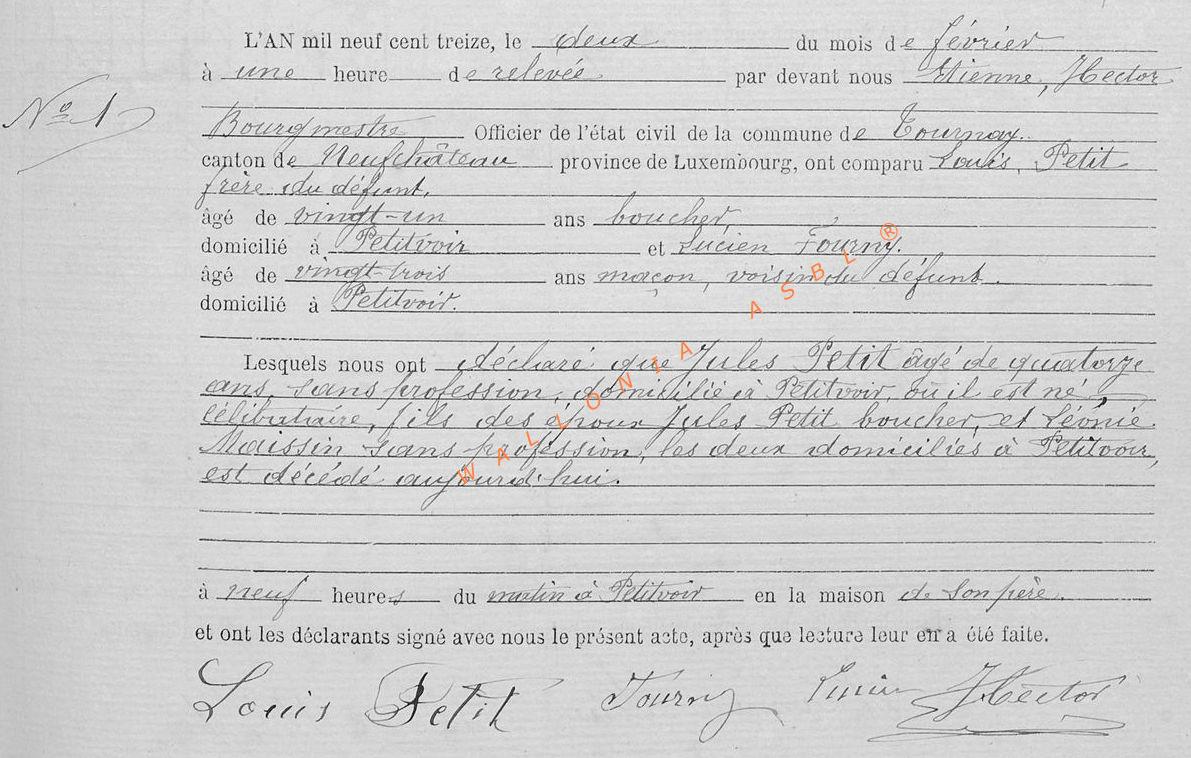 L'AN mil neuf cent treize, le deux du mois de février
à une heure de relevée par devant nous Etienne, Hector
N° 1
Bourgmestre, Officier de l'état civil de la commune de Tournay.
canton de Neufchâteau province de Luxembourg, ont comparu Louis, Petit
frère du défunt,
âgé de vingt-un ans boucher,
domicilié à Petitvoir et Lucien Fourny.
âgé de vingt-trois ans maçon, voisin du défunt.
domicilié à Petitvoir.
Lesquels nous ont déclaré que Jules Petit âgé de quatorze
ans, sans profession, domicilié à Petitvoir, où il est né,
célibataire, fils des époux Jules Petit boucher, et Léonie
Maissin sans profession, les deux domiciliés à Petitvoir,
est décédé aujourd'hui.
WALLONIA ASBL ®
à neuf heures du matin à Petitvoir en la maison de son père.
et ont les déclarants signé avec nous le présent acte, après que lecture leur en a été faite.
Louis Petit Fourny Lucien Hector